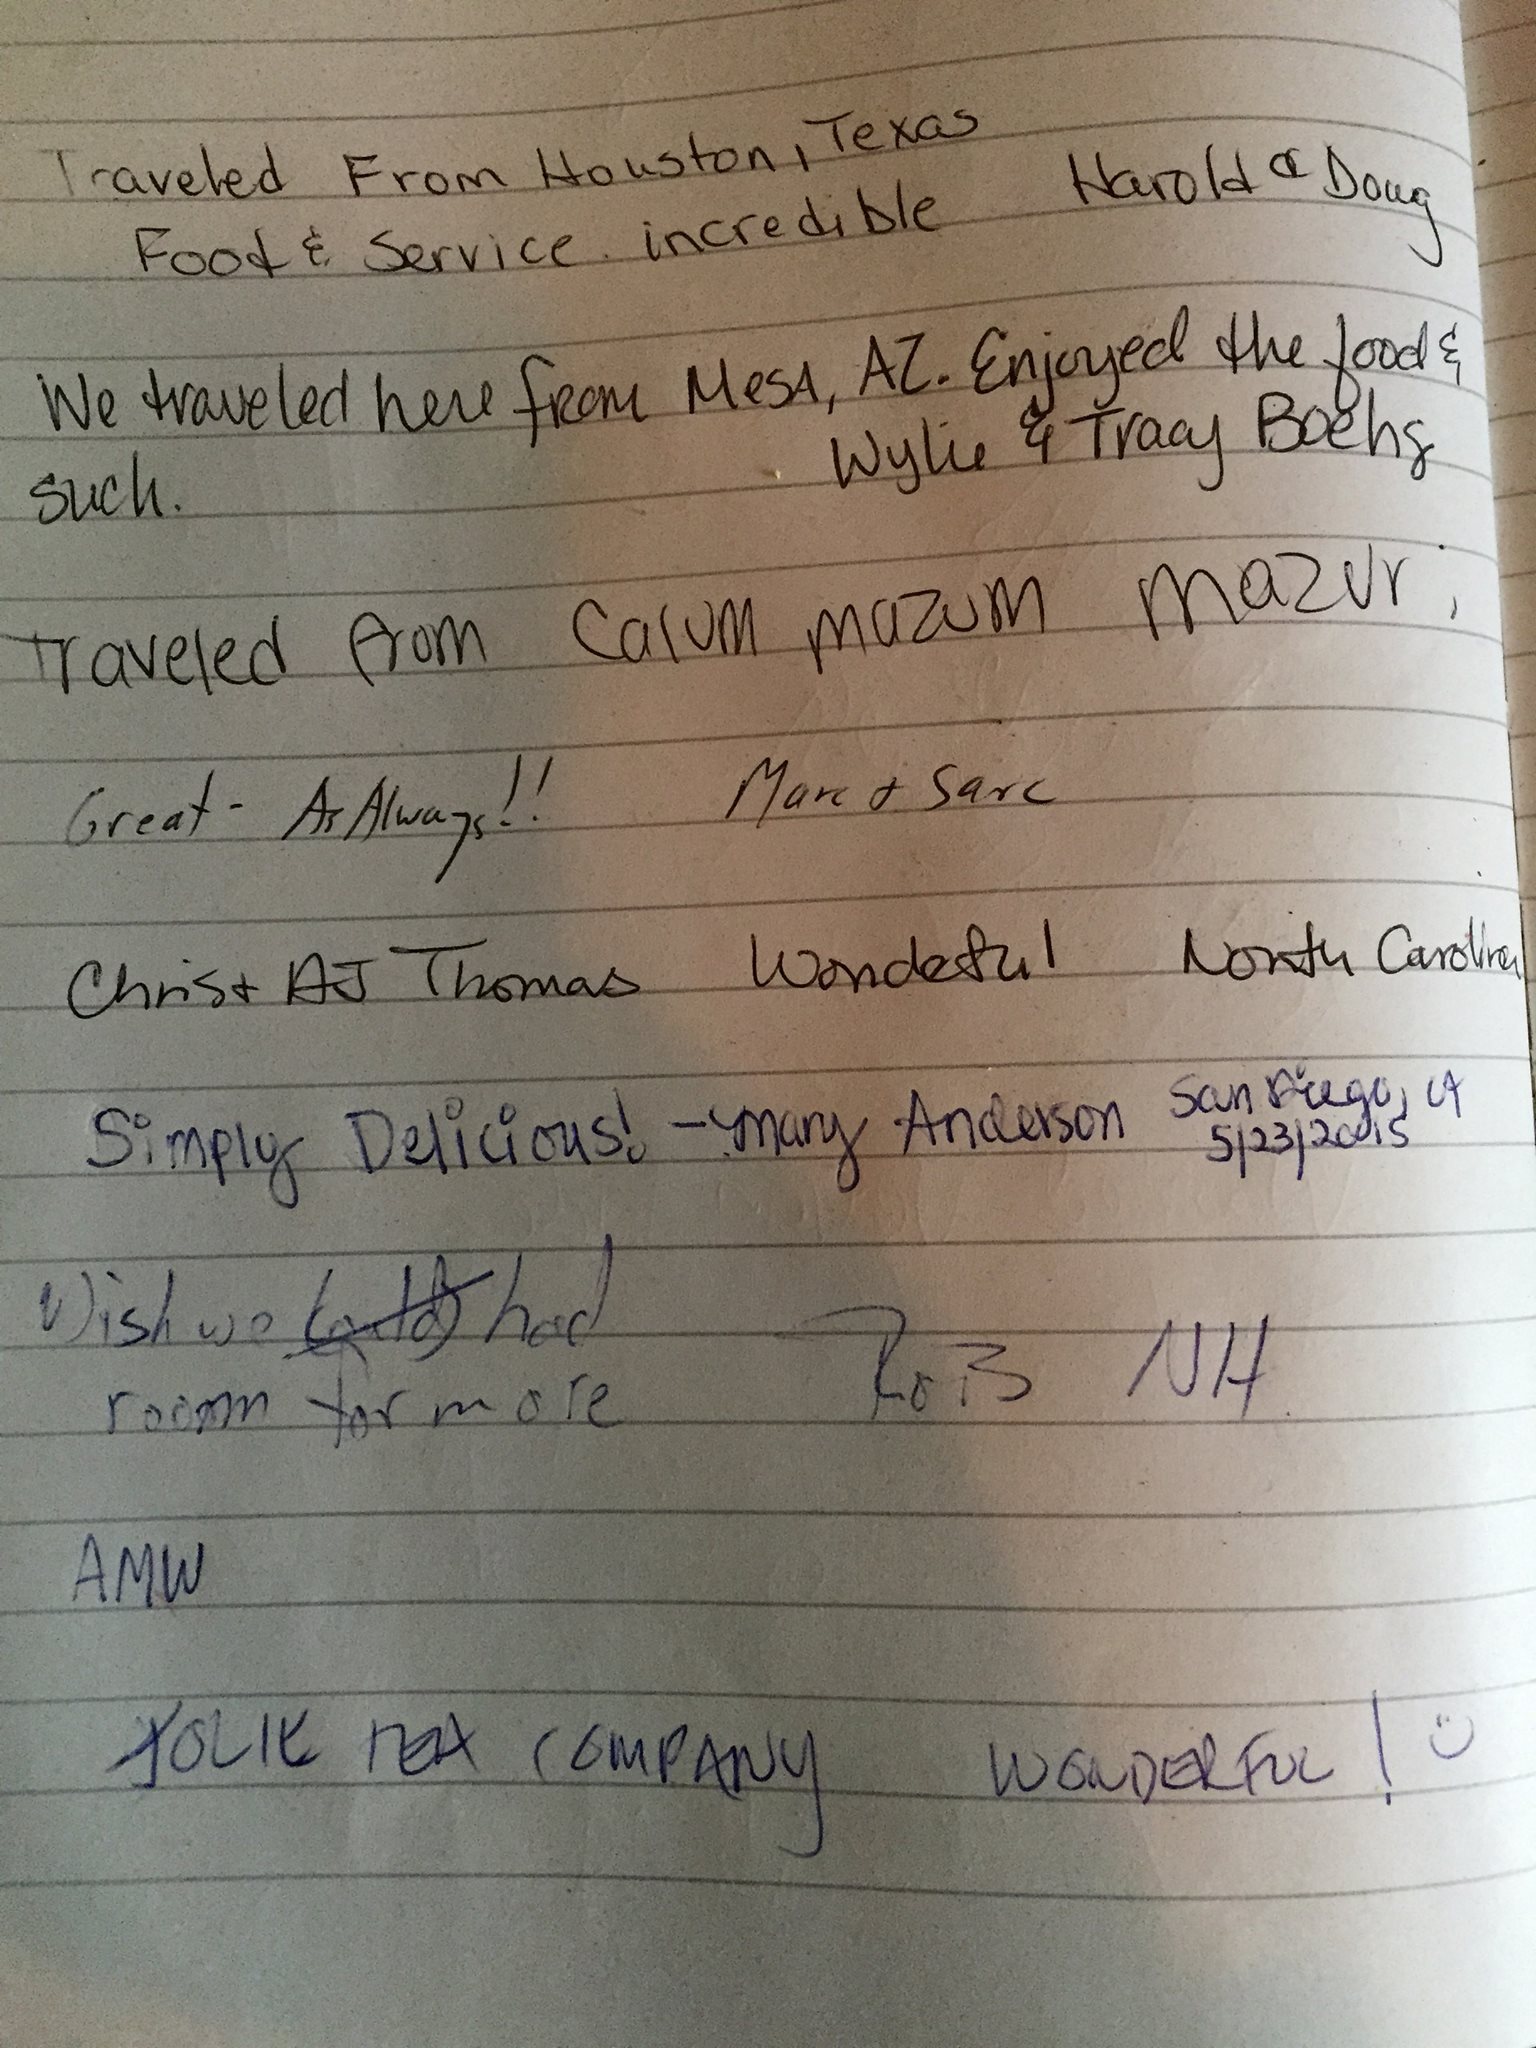 Traveled From Houston, Texas Harold & Doug
Food & Service incredible
We traveled here from Mesa, AZ. Enjoyed the food &
such. Wylie & Tracy Boehs
Traveled from Calum mazum mazur;
Great - As Always!! Marc + Sare
Chris + AJ Thomas Wondeful North Carolina
Simply Delicious! - Mary Anderson San Diego, CA
5/23/2015
Wish we had
room for more Rob NH.
AMW
JOLIE TEA COMPANY WONDERFUL! :)